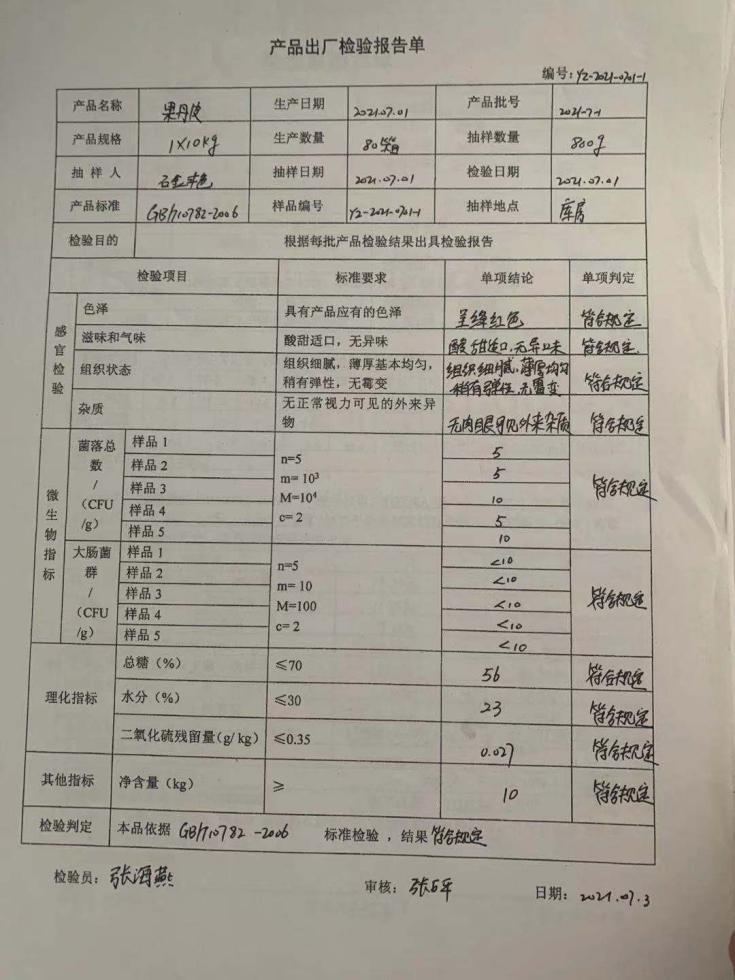 产品出厂检验报告单
编号：YZ-2021-0701-1
产品名称 果丹皮 生产日期 2021.07.01 产品批号 2021-7-1
产品规格 1X10kg 生产数量 80箱 抽样数量 800g
抽样人 抽样日期 2021.07.01 检验日期 2021.07.01
产品标准 GB/T10782-2006 样品编号 YZ-2021-0701-1 抽样地点 库房
检验目的 根据每批产品检验结果出具检验报告
检验项目 标准要求 单项结论 单项判定
感官检验
色泽 具有产品应有的色泽 呈绛红色 符合规定
滋味和气味 酸甜适口，无异味 酸甜适口.无异味 符合规定
组织状态 组织细腻，薄厚基本均匀， 组织细腻.薄厚均匀 符合规定
稍有弹性，无霉变 稍有弹性.无霉变
杂质 无正常视力可见的外来异 无肉眼可见外来杂质 符合规定
物
微生物指标
菌落总数/（CFU/g）
样品 1 5
样品 2 n=5 5
样品 3 m= 10³ 10 符合规定
样品 4 M=10⁴ 5
样品 5 c= 2 10
大肠菌群/（CFU/g）
样品 1 n=5 <10
样品 2 m= 10 <10
样品 3 M=100 <10 符合规定
样品 4 c= 2 <10
样品 5 <10
理化指标
总糖（%） ≤70 56 符合规定
水分（%） ≤30 23 符合规定
二氧化硫残留量(g/kg) ≤0.35 0.027 符合规定
其他指标 净含量（kg） ≥ 10 符合规定
检验判定 本品依据 GB/T10782-2006 标准检验，结果 符合规定
检验员：张海燕 审核： 日期：2021.07.3